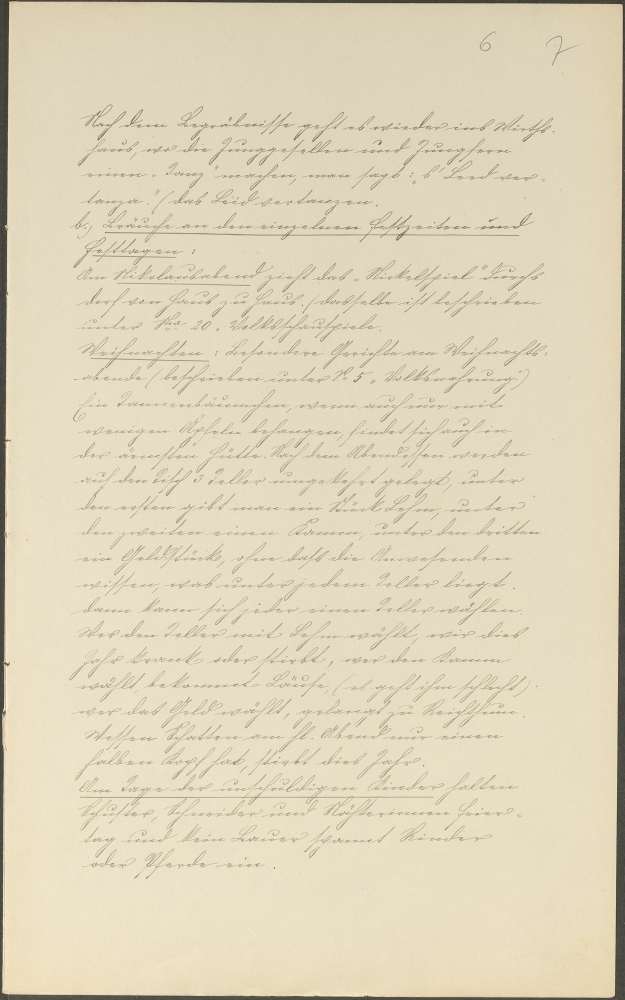 6 7
Nach dem Begräbnisse geht es wieder ins Wirths-
haus, wo die Junggesellen und Jungfern
einen „Tanz" machen, man sagt: „s' Leed ver-
tanza." (das Leid vertanzen.
b.) Bräuche an den einzelnen Festzeiten und
Festtagen:
Am Nikolausabend zieht das „Nickelspiel" durchs
Dorf von Haus zu Haus. (dasselbe ist beschrieben
unter Nro 20. Volksschauspiele.
Weihnachten: Besondere Gerichte am Weihnachts-
abende (beschrieben unter No 5 „Volksnahrung")
Ein Tannenbäumchen, wenn auch nur mit
wenigen Äpfeln behangen, findet sich auch in
der ärmsten Hütte. Nach dem Abendessen werden
auf den Tisch 3 Teller umgekehrt gelegt, unter
den ersten gibt man ein Stück Lehm, unter
den zweiten einen Kamm, unter den dritten
ein Geldstück, ohne daß die Anwesenden
wissen, was unter jedem Teller liegt.
dann kann sich jeder einen Teller wählen.
Wer den Teller mit Lehm wählt, wir dies
Jahr krank oder stirbt, wer den Kamm
wählt, bekommt Läuse, (es geht ihm schlecht).
wer das Geld wählt, gelangt zu Reichthum.
Wessen Schatten am hl. Abend nur einen
halben Kopf hat, stirbt dies Jahr.
Am Tage der unschuldigen Kinder halten
Schuster, Schneider und Nähterinnen Feier-
tag und kein Bauer spannt Rinder
oder Pferde ein.